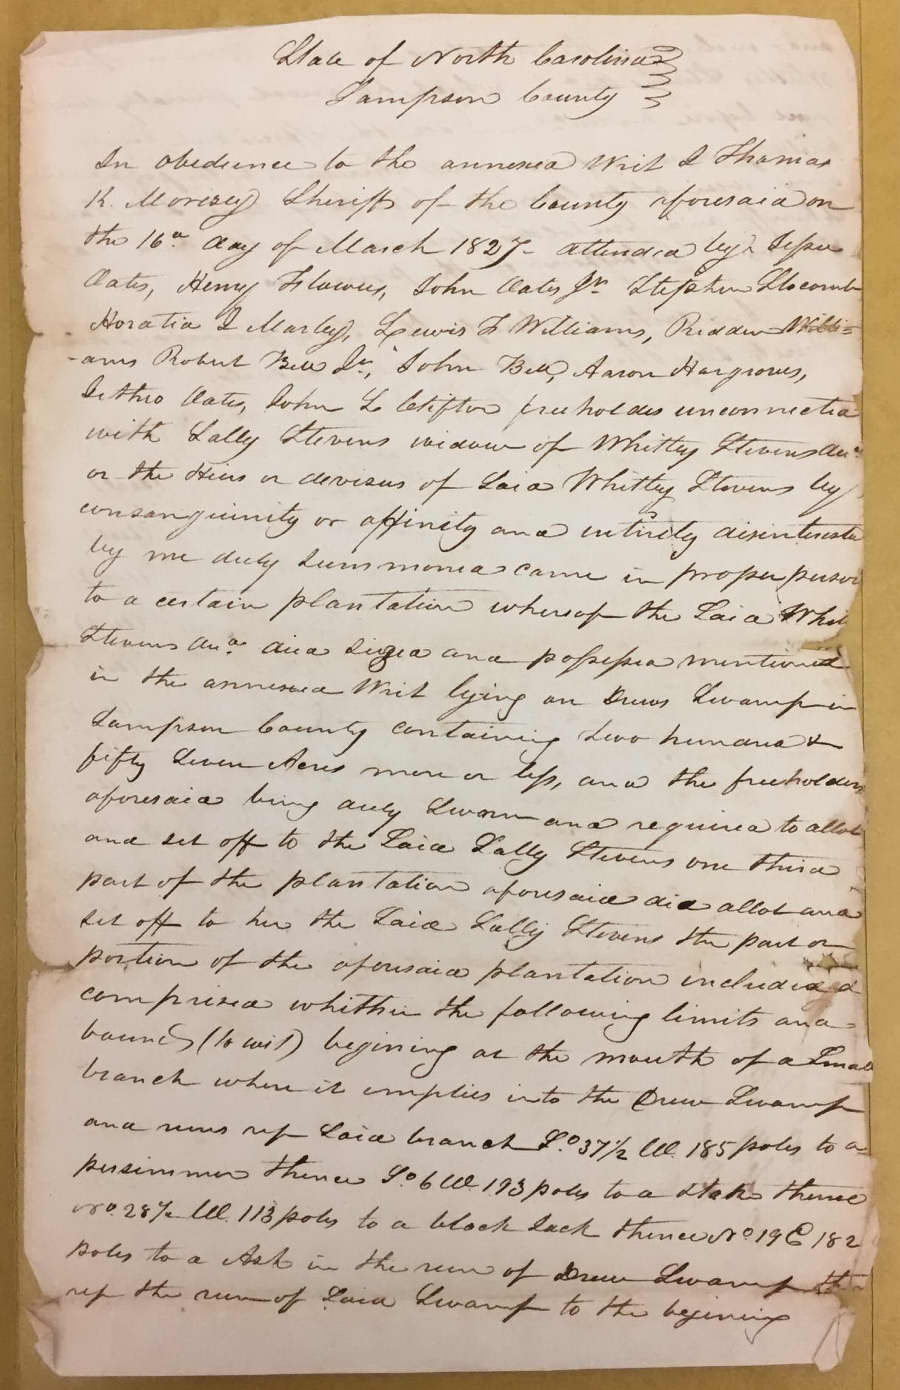 State of North Carolina
Sampson County
In obedience to the annexed Writ I Thomas
K. Morisey Sheriff of the County aforesaid on
the 16th day of March 1827 attended by
Oates, Henry Flowers, John Oates Jr Stephen Slocumb
Horatia I Marley, Lewis F Williams, Redden Willi=
-ams Robert Bell Jr, John Bell, Aaron Hargroves,
Jethro Oates, John L Clifton freeholdes unconnected
with Sally Stevens widow of Whitley Stevens decd
or the Heirs or devisees of said Whitley Stevens by
consanguinity or affinity and entirely disintereste
by me duly summoned came in proper person
to a certain plantation whereof the said Whit
Stevens decd died siezed and possessed mentioned
in the annexed Writ lying on Drews Swamp in
Sampson County containing two hundred &
fifty seven Acres more or less, and the freeholders
aforesaid being duly sworn and required to allot
and set off to the said Sally Stevens one third
part of the plantation aforesaid did allot and
set off to her the said Sally Stevens the part or
portion of the aforesaid plantation included &
comprised whithin the following limits and
bounds (to wit) begining at the mouth of a small
branch where it empties into the Drew Swamp
and runs up said branch So 37 1/2 W. 185 poles to a
persimmon thence So 6 W. 193 poles to a stake thence
No 28 1/2 W. 113 poles to a black Jack thence No 19 E 182
poles to a Ash in the run of Drew Swamp then
up the run of said Swamp to the begining